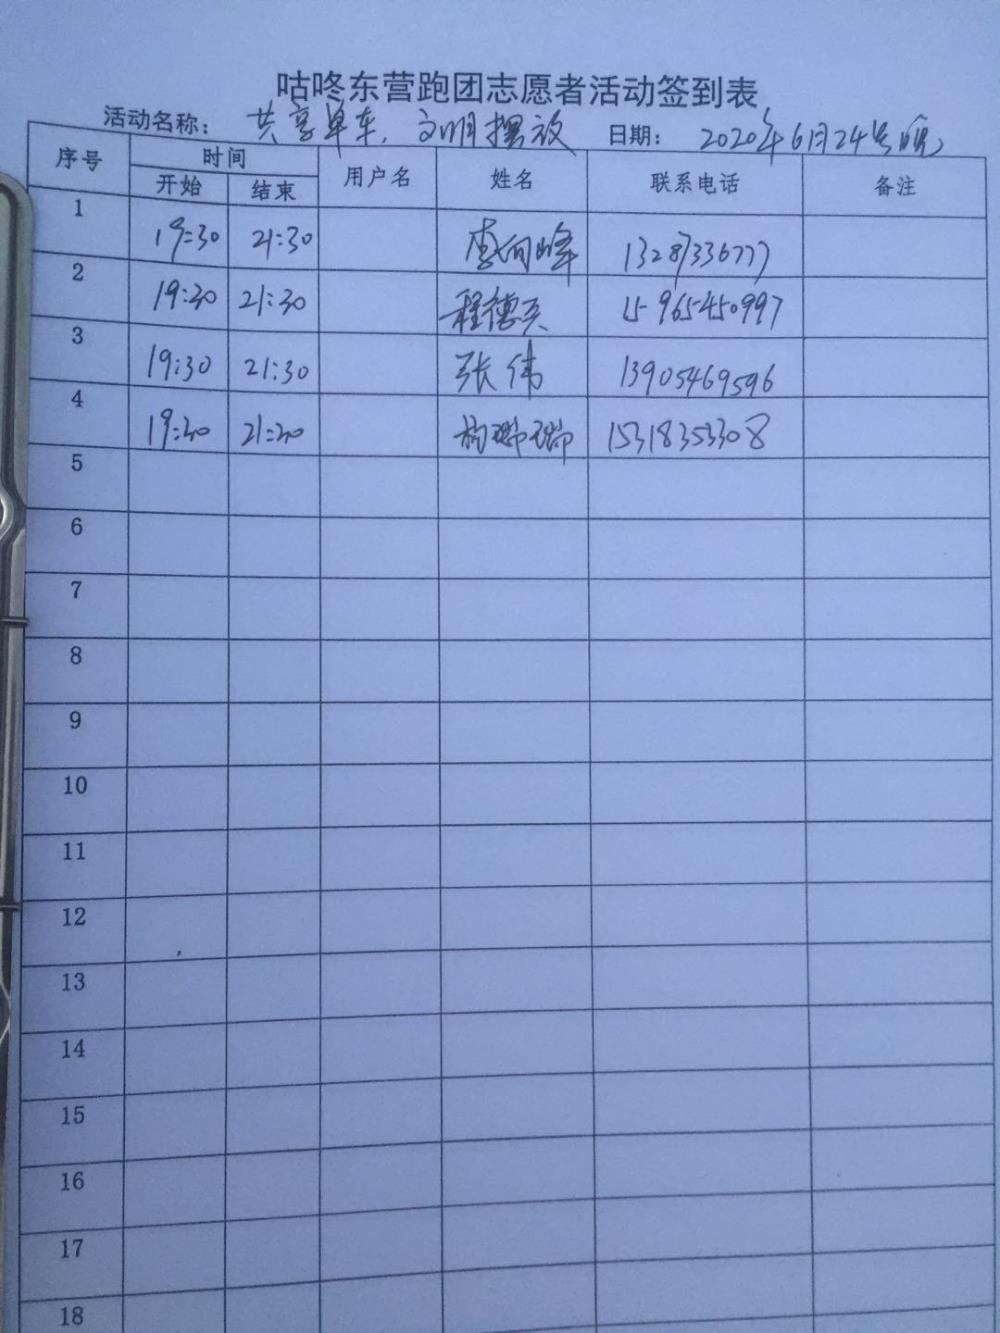 咕咚东营跑团志愿者活动签到表
活动名称： 共享单车，文明摆放 日期： 2020年6月24号晚
序号 时间 用户名 姓名 联系电话 备注
开始 结束
1 19:30 21:30 李向峰 13287336777
2 19:30 21:30 程德 15965450997
3 19:30 21:30 张伟 13905469596
4 19:30 21:30 15318353308
5
6
7
8
9
10
11
12
13
14
15
16
17
18